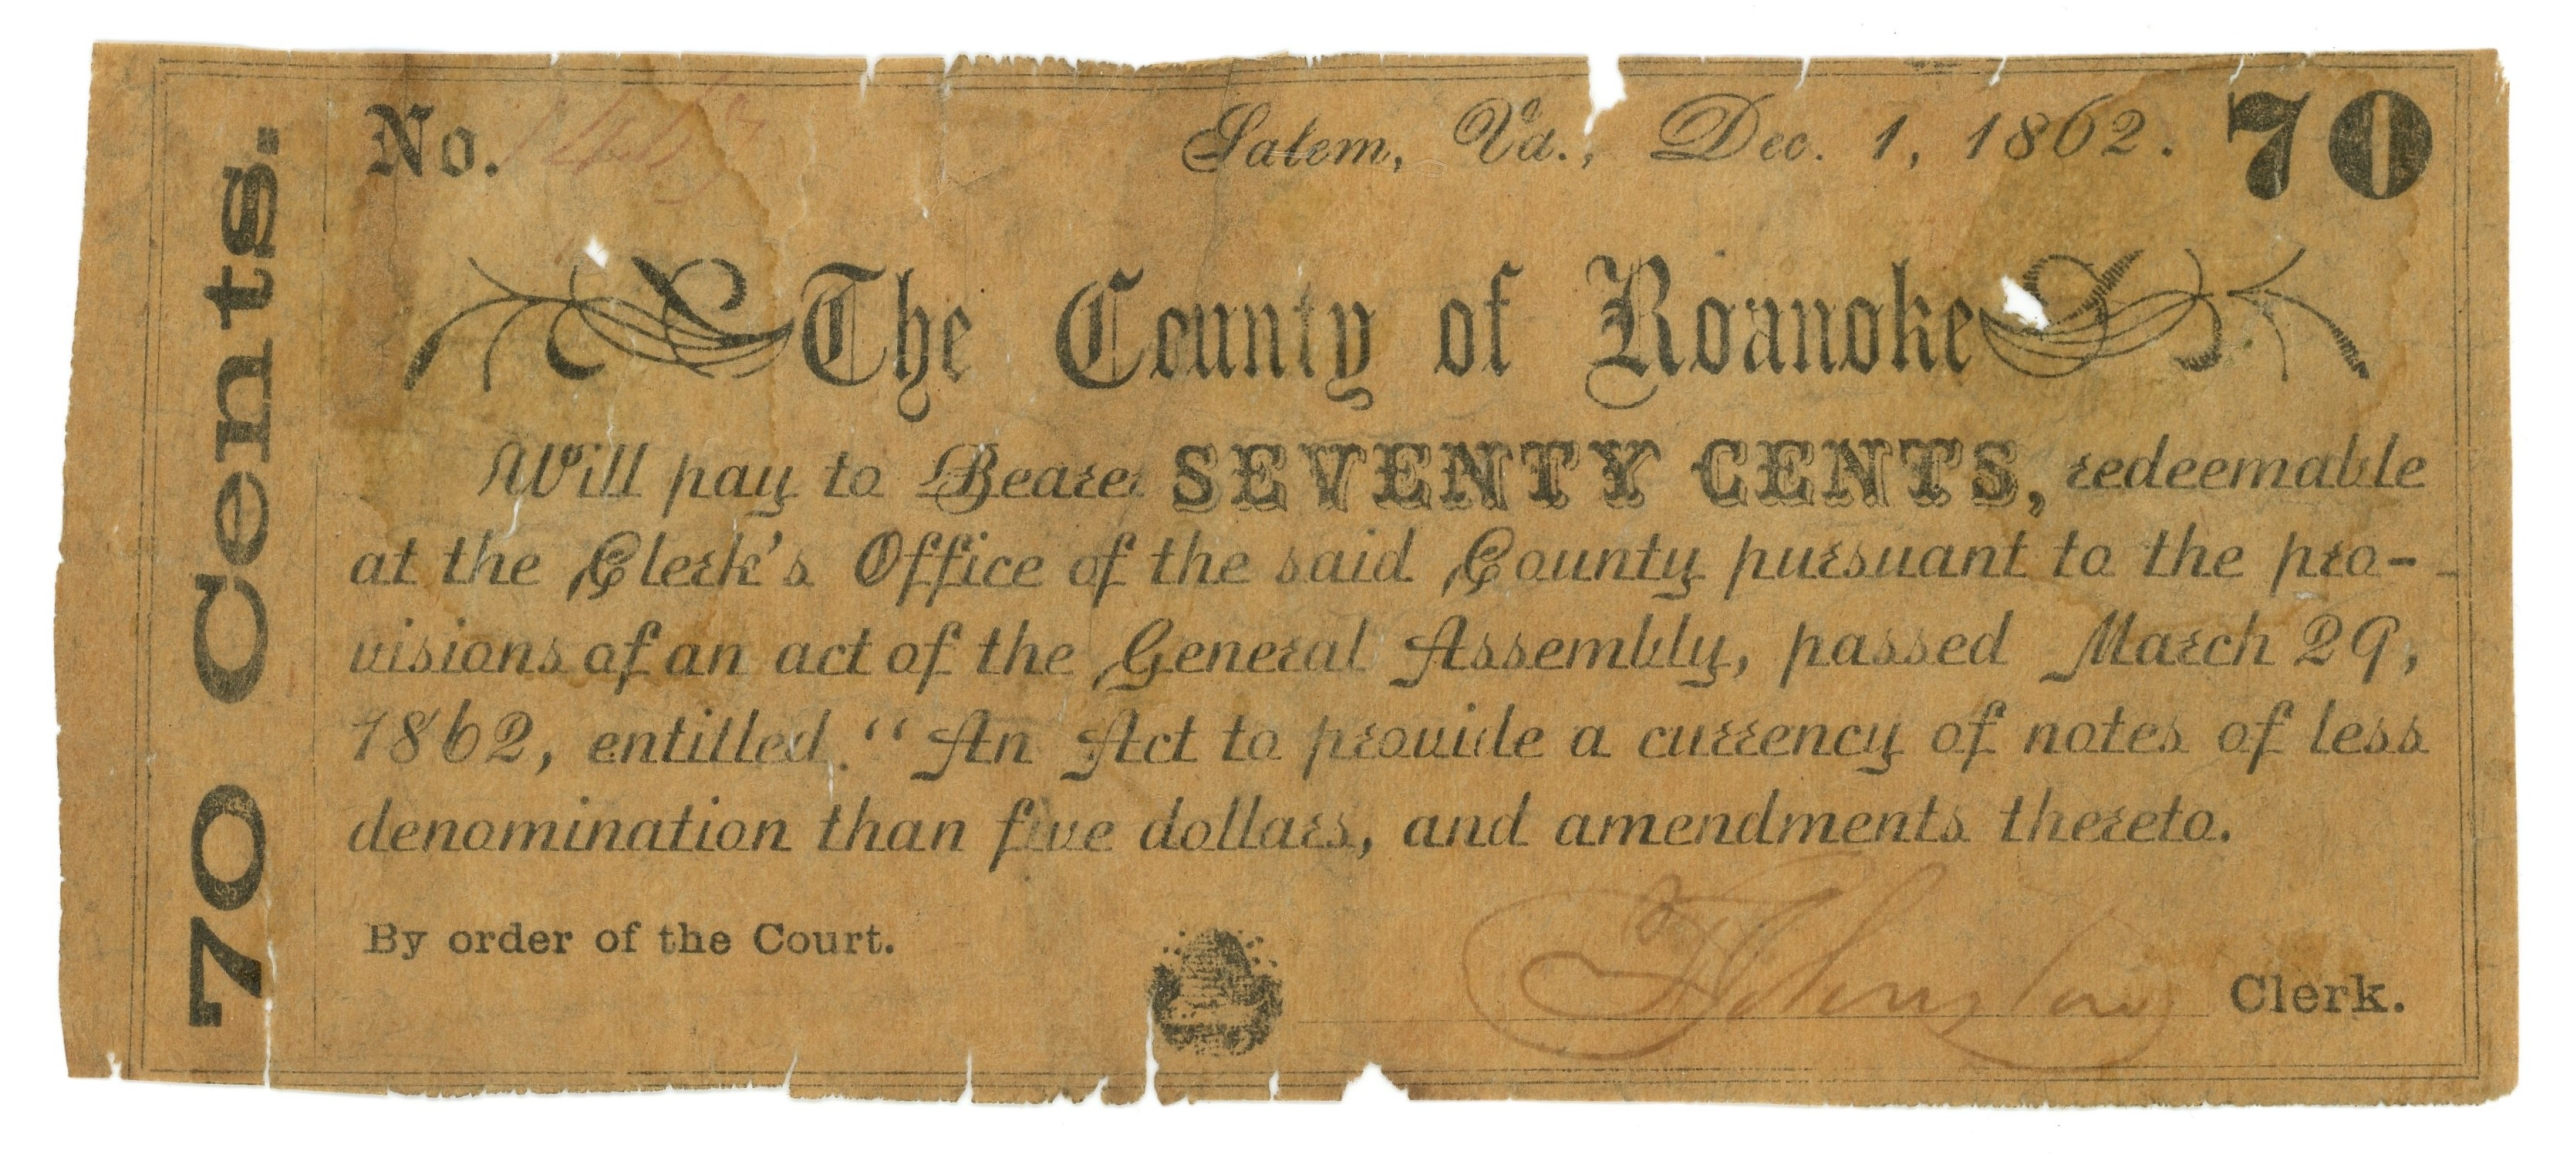 70 Cents.
No.
Salem, Va., Dec. 1, 1862. 70
The County of Roanoke
Will pay to Bearer SEVENTY CENTS, redeemable
at the Clerk's Office of the said County pursuant to the pro-
visions of an act of the General Assembly, passed March 29,
1862, entitled "An Act to provide a currency of notes of less
denomination than five dollars, and amendments thereto.
By order of the Court.
Johnston Clerk.